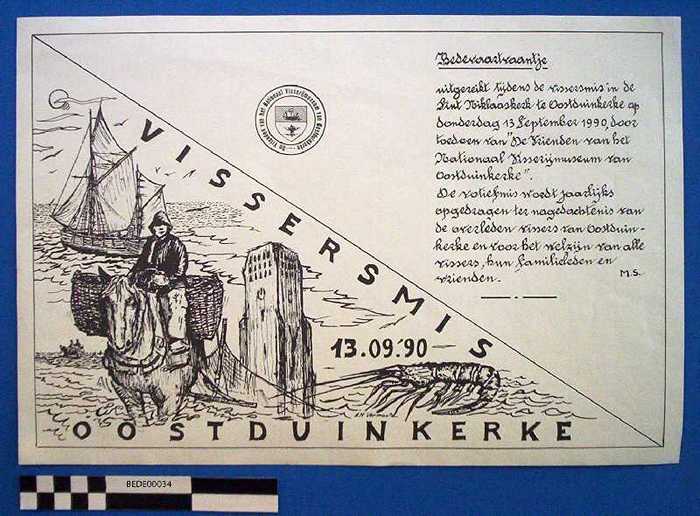 Bedevaartvaantje
uitgereikt tijdens de vissersmis in de
Sint Niklaaskerk te Oostduinkerke op
donderdag 13 September 1990, door
toedoen van "De Vrienden van het
Nationaal Visserijmuseum van
Oostduinkerke".
De votiefmis wordt jaarlijks
opgedragen ter nagedachtenis van
de overleden vissers van Oostduin-
kerke en voor het welzijn van alle
vissers, hun familieleden en
vrienden.
M.S.
De Vrienden van het Nationaal Visserijmuseum van Oostduinkerke
VISSERSMIS
13.09.'90
OOSTDUINKERKE
BEDE00034